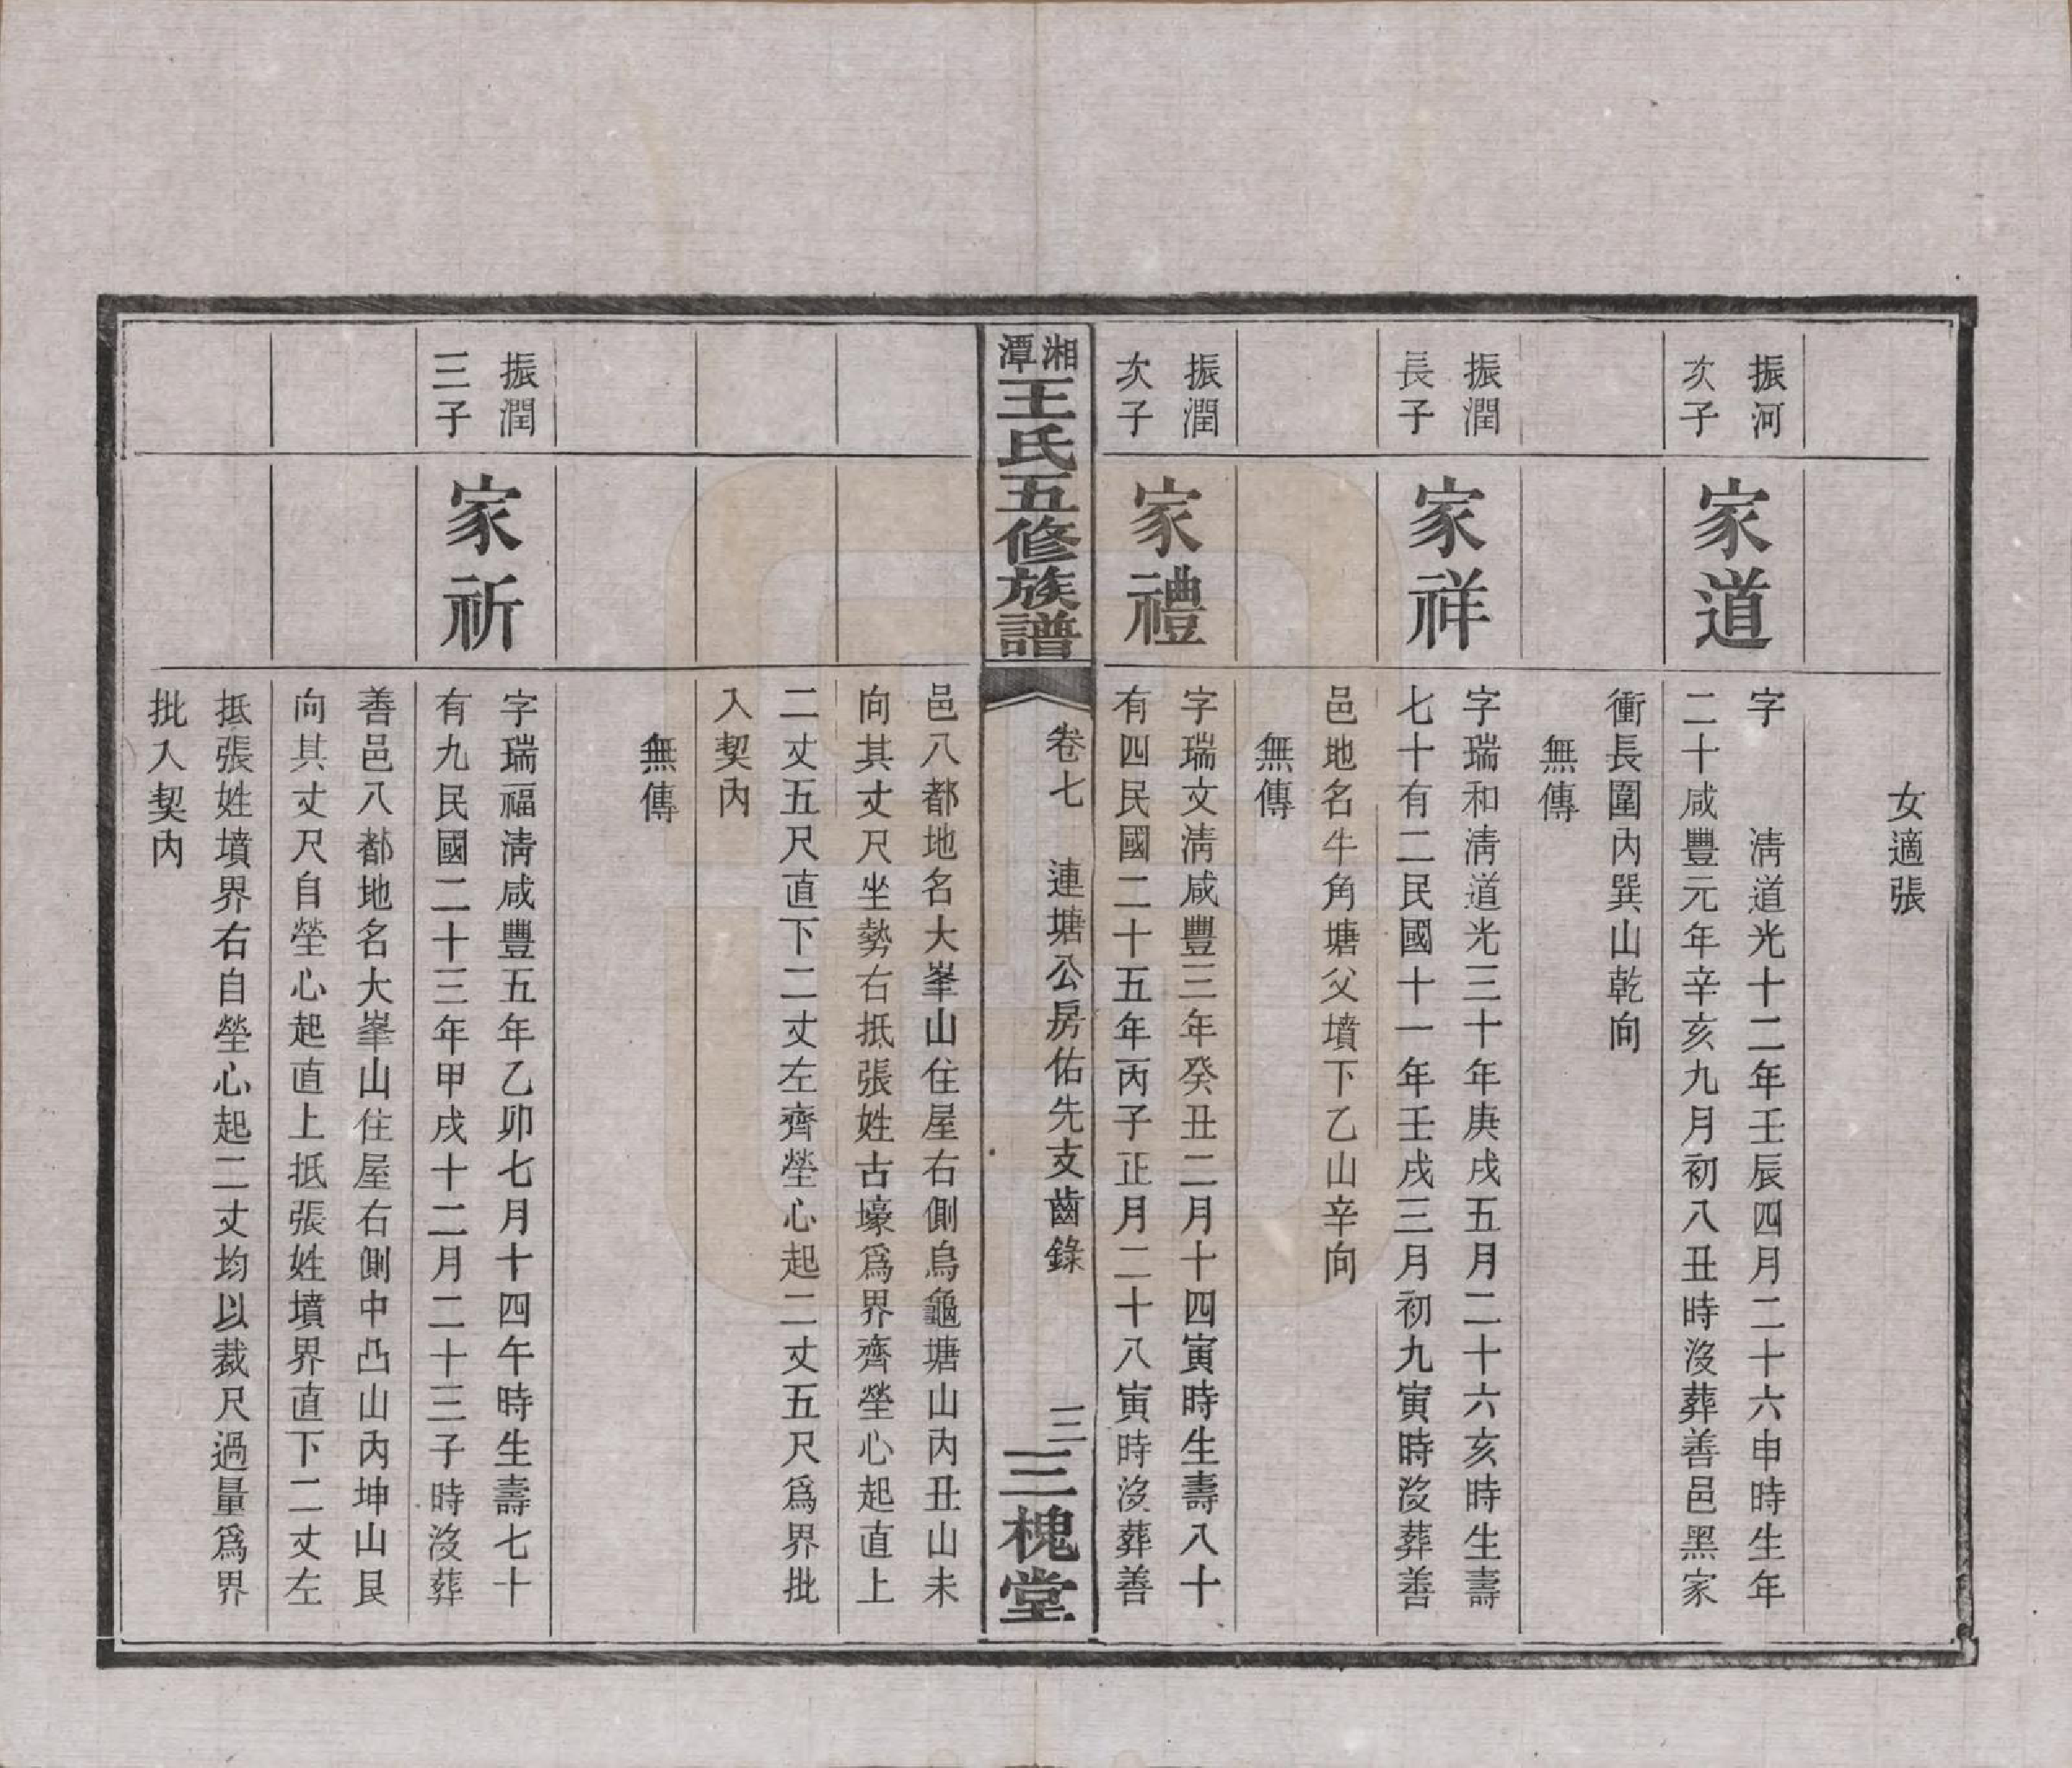 女適張
振河
次子
家道
字　清道光十二年壬辰四月二十六申時生年
二十咸豐元年辛亥九月初八丑時沒葬善邑黑家
衝長圍內巽山乾向
無傳
振潤
長子
家祥
字瑞和清道光三十年庚戌五月二十六亥時生壽
七十有二民國十一年壬戌三月初九寅時沒葬善
邑地名牛角塘父墳下乙山辛向
無傳
振潤
次子
家禮
字瑞文清咸豐三年癸丑二月十四寅時生壽八十
有四民國二十五年丙子正月二十八寅時沒葬善
湘潭王氏五修族譜
卷七　連塘公房佑先支齒錄　三
三槐堂
邑八都地名大峯山住屋右側烏龜塘山內丑山未
向其丈尺坐勢右抵張姓古壕爲界齊塋心起直上
二丈五尺直下二丈左齊塋心起二丈五尺爲界批
入契內
無傳
振潤
三子
家祈
字瑞福清咸豐五年乙卯七月十四午時生壽七十
有九民國二十三年甲戌十二月二十三子時沒葬
善邑八都地名大峯山住屋右側中凸山內坤山艮
向其丈尺自塋心起直上抵張姓墳界直下二丈左
抵張姓墳界右自塋心起二丈均以裁尺過量爲界
批入契內